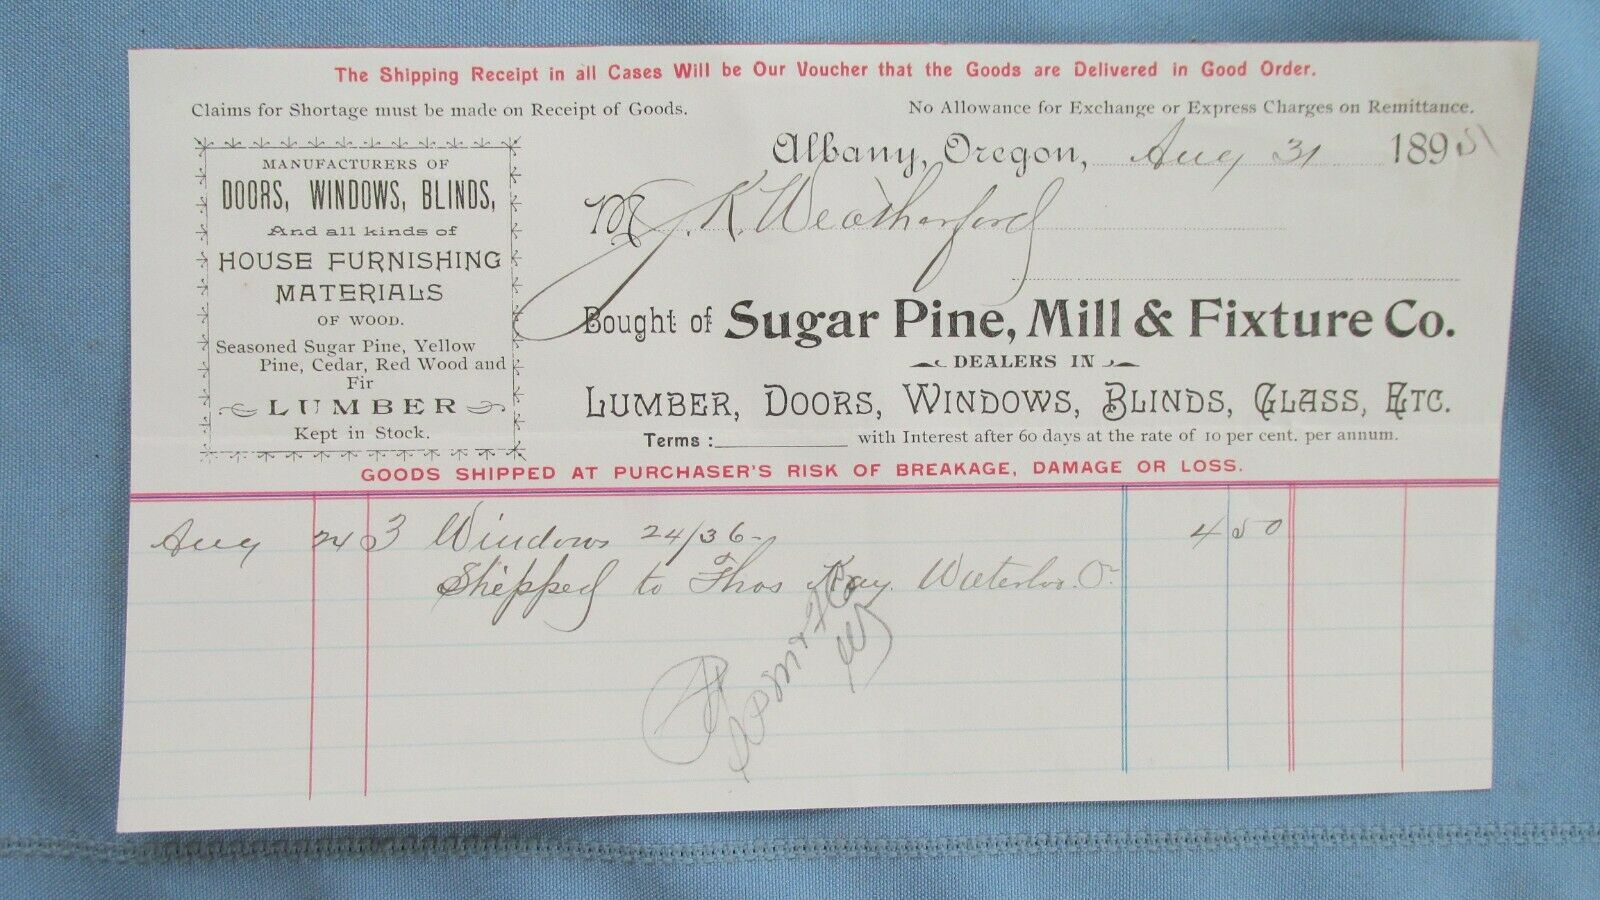 The Shipping Receipt in all Cases Will be Our Voucher that the Goods are Delivered in Good Order.
Claims for Shortage must be made on Receipt of Goods.
No Allowance for Exchange or Express Charges on Remittance.
MANUFACTURERS OF
DOORS, WINDOWS, BLINDS,
And all kinds of
HOUSE FURNISHING
MATERIALS
OF WOOD.
Seasoned Sugar Pine, Yellow
Pine, Cedar, Red Wood and
Fir
LUMBER
Kept in Stock.
Albany, Oregon, Aug 31 189
M J. K. Weatherford
Bought of Sugar Pine, Mill & Fixture Co.
DEALERS IN
LUMBER, DOORS, WINDOWS, BLINDS, GLASS, ETC.
Terms: with Interest after 60 days at the rate of 10 per cent. per annum.
GOODS SHIPPED AT PURCHASER'S RISK OF BREAKAGE, DAMAGE OR LOSS.
Aug 24 3 Windows 24/36 - 4 50
Shipped to Thos Kay. Waterloo. Or.